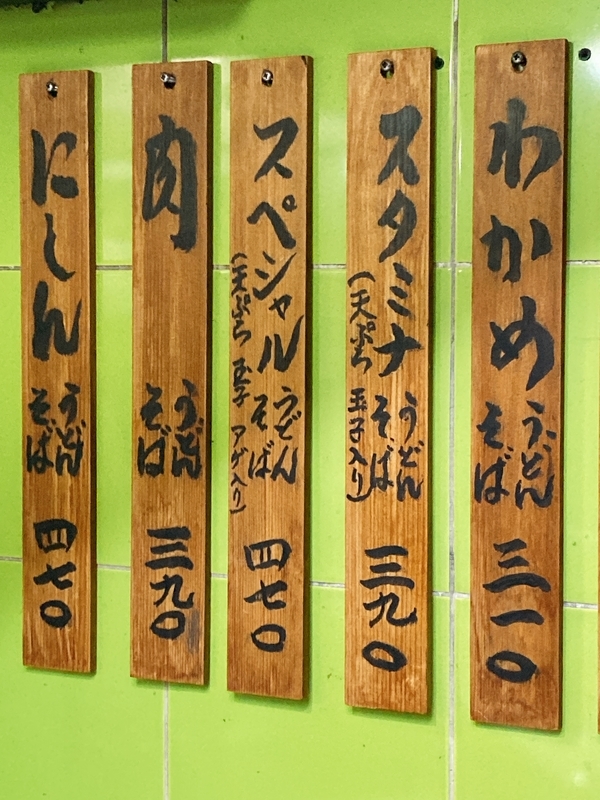 わかめ
うどん
そば
三一〇
スタミナ
(天ぷら 玉子入り)
うどん
そば
三九〇
スペシャル
(天ぷら 玉子 アゲ入り)
うどん
そば
四七〇
肉
うどん
そば
三九〇
にしん
うどん
そば
四七〇